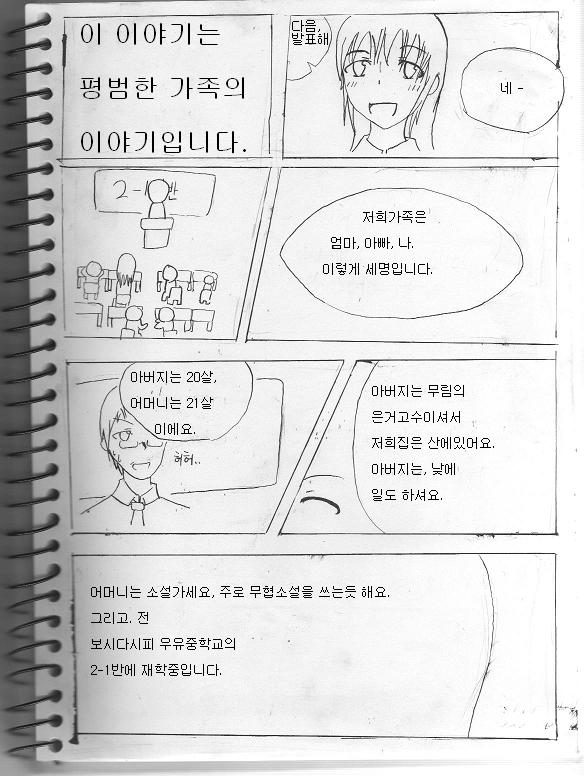 이 이야기는
평범한 가족의
이야기입니다.
다음,
발표해
네 -
2-1반
저희가족은
엄마, 아빠, 나.
이렇게 세명입니다.
아버지는 20살,
어머니는 21살
이에요.
허허..
아버지는 무림의
은거고수이셔서
저희집은 산에있어요.
아버지는, 낮에
일도 하셔요.
어머니는 소설가세요, 주로 무협소설을 쓰는듯 해요.
그리고. 전
보시다시피 우유중학교의
2-1반에 재학중입니다.